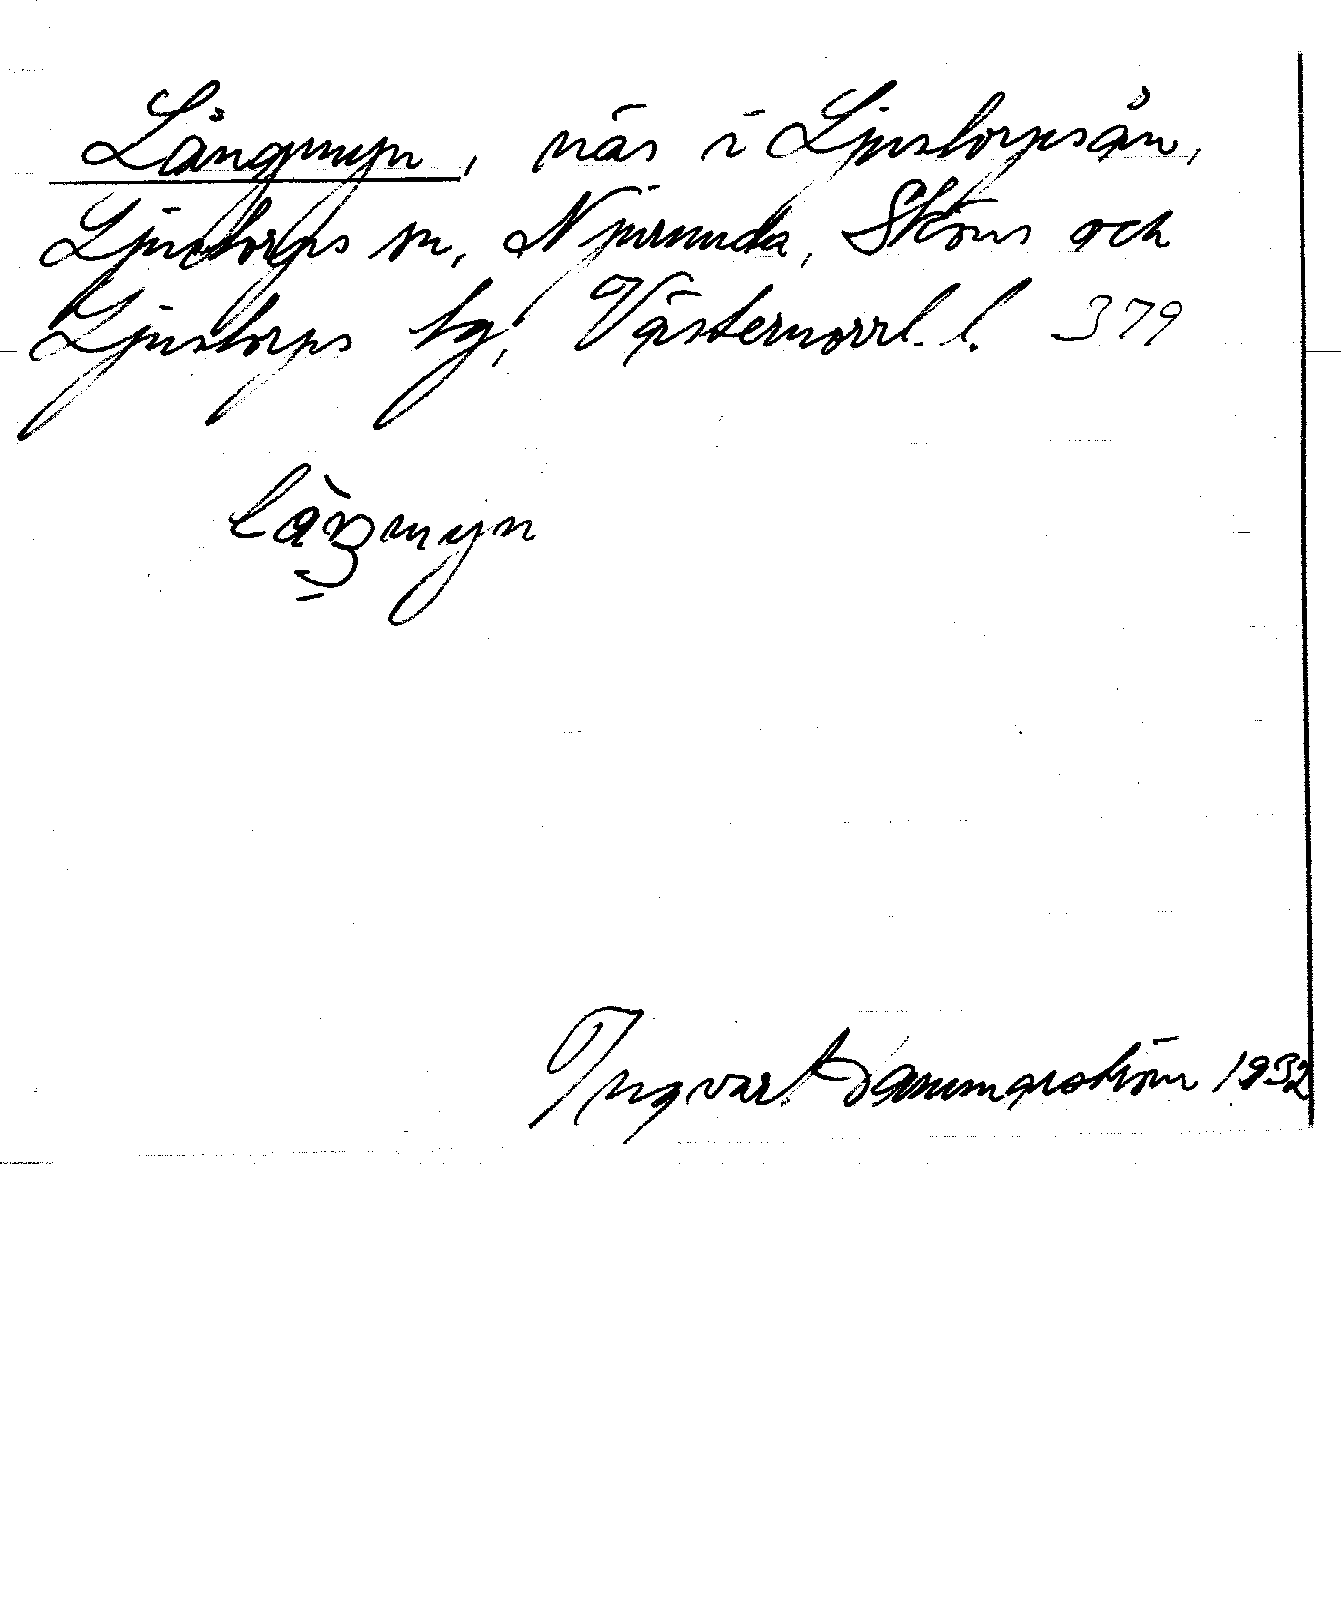 Långmyn, näs i Ljustorpsån,
Ljustorps sn, Njurunda, Sköns och
Ljustorps tg, Västernorrl. l. 379
låŋmyn
Ingvar Dammarström 1932